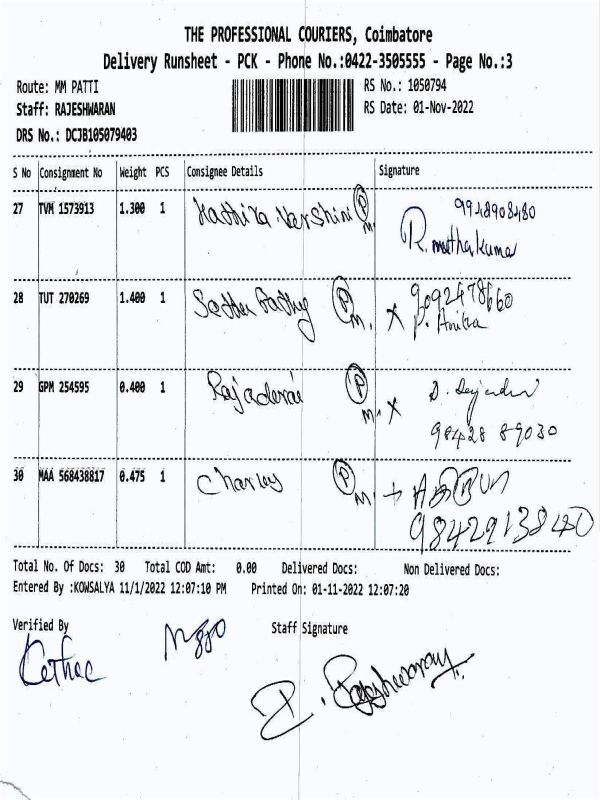 THE PROFESSIONAL COURIERS, Coimbatore
Delivery Runsheet - PCK - Phone No.:0422-3505555 - Page No.:3
Route: MM PATTI
RS No.: 1050794
Staff: RAJESHWARAN
RS Date: 01-Nov-2022
DRS No.: DCJB105079403
S No Consignment No Weight PCS Consignee Details Signature
27 TVM 1573913 1.300 1 Kathira Varshini P M.
9948908480
R. muthakumar
28 TUT 270269 1.400 1 P M. X
9092478660
P. Anika
29 GPM 254595 0.400 1 Rajadurai P M. X
98428 89030
30 MAA 568438817 0.475 1 Charley P M. +
9842913840
Total No. Of Docs: 30 Total COD Amt: 0.00 Delivered Docs: Non Delivered Docs:
Entered By :KOWSALYA 11/1/2022 12:07:10 PM Printed On: 01-11-2022 12:07:20
Verified By
Staff Signature
R. Rajeshwaran